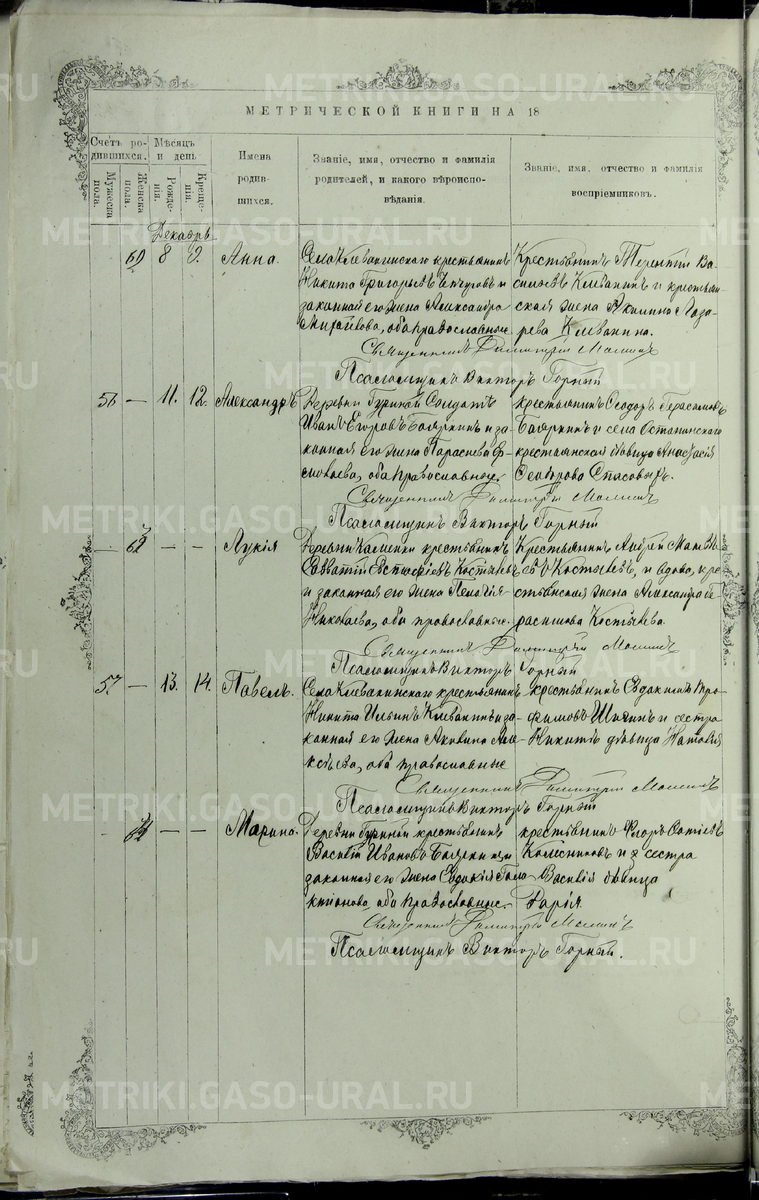 МЕТРИЧЕСКОЙ КНИГИ НА 18
Счетъ родившихся.
Мужеска пола.
Женска пола.
Мѣсяцъ и день
Рожденія.
Крещенія.
Имена родившихся.
Званіе, имя, отчество и фамилія родителей, и какого вѣроисповѣданія.
Званіе, имя, отчество и фамилія воспріемниковъ.
Декабрь
60 8 9. Анна.
Села Клевакинскаго крестьянинъ
Никита Григорьевъ и
законная его жена Александра
Михайлова, оба православные.
Крестьянинъ Терентій Ва-
сильевъ Клевакинъ и крестьян-
ская жена Акилина Лаза-
рева Клевакина.
Священникъ Димитрій
Псаломщикъ Викторъ Горный
56 — 11. 12. Александръ
Деревни Солдатъ
Иванъ Егоровъ Бояркинъ и за-
конная его жена Параскева
оба православные.
крестьянинъ Ѳеодоръ Герасимовъ
Бояркинъ и села Останинскаго
крестьянская дѣвица Анастасія
Священникъ Димитрій
Псаломщикъ Викторъ Горный
— — — Лукія
Деревни Каменки крестьянинъ
Савватій Костычевъ
и законная его жена Пелагія
Николаева, оба православные.
Крестьянинъ Андрей
Костычевъ, и вдова, кре-
стьянская жена Александра Ге-
расимова Костычева.
Священникъ Димитрій
Псаломщикъ Викторъ Горный
57. — 13. 14. Павелъ.
Села Клевакинскаго крестьянинъ
Никита Ильинъ Клевакинъ и за-
конная его жена Акилина Але-
ксѣева, оба православные
крестьянинъ Евдокимъ Тро-
фимовъ и сестра
Никиты дѣвица Наталія
Священникъ Димитрій
Псаломщикъ Викторъ Горный
— — — Марина.
Деревни крестьянинъ
Василій Ивановъ Бояркинъ и
законная его жена Евдокія Гала-
ктіонова, оба православные.
крестьянинъ Флоръ
Колесниковъ и сестра
Василія дѣвица
Дарія
Священникъ Димитрій
Псаломщикъ Викторъ Горный.
METRIKI.GASO-URAL.RU